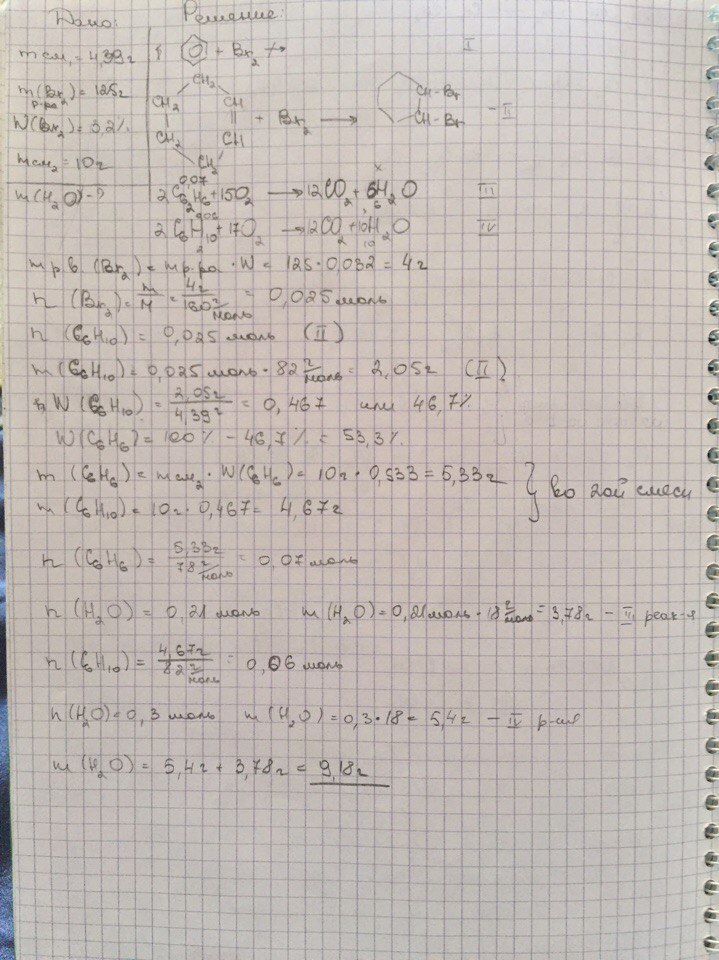 Дано:
Решение:
m см₁ = 4,39г
+ Br₂ ↛ I
m(Br₂) = 125г
р-ра
W(Br₂) = 3,2%
CH₂
CH₂ CH
CH₂ CH + Br₂ → CH-Br - II
CH₂ CH-Br
m см₂ = 10г
m(H₂O) - ?
0,07 x
2C₆H₆ + 15O₂ → 12CO₂ + 6H₂O III
2 6
0,06
2C₆H₁₀ + 17O₂ → 12CO₂ + 10H₂O IV
2 10
m р.в. (Br₂) = m р.ра · W = 125 · 0,032 = 4г
n (Br₂) = m/M = 4г/160 г/моль = 0,025 моль
n (C₆H₁₀) = 0,025 моль (II)
m (C₆H₁₀) = 0,025 моль · 82 г/моль = 2,05г (II)
W (C₆H₁₀) = 2,05г/4,39г = 0,467 или 46,7%
W(C₆H₆) = 100% - 46,7% = 53,3%
m (C₆H₆) = m см₂ · W(C₆H₆) = 10г · 0,533 = 5,33г } во 2ой смеси
m (C₆H₁₀) = 10г · 0,467 = 4,67г
n (C₆H₆) = 5,33г/78 г/моль = 0,07 моль
n (H₂O) = 0,21 моль m (H₂O) = 0,21 моль · 18 г/моль = 3,78г - III реак-я
n (C₆H₁₀) = 4,67г/82 г/моль = 0,06 моль
n (H₂O) = 0,3 моль m (H₂O) = 0,3 · 18 = 5,4г - IV р-ция
m (H₂O) = 5,4г + 3,78г = 9,18г